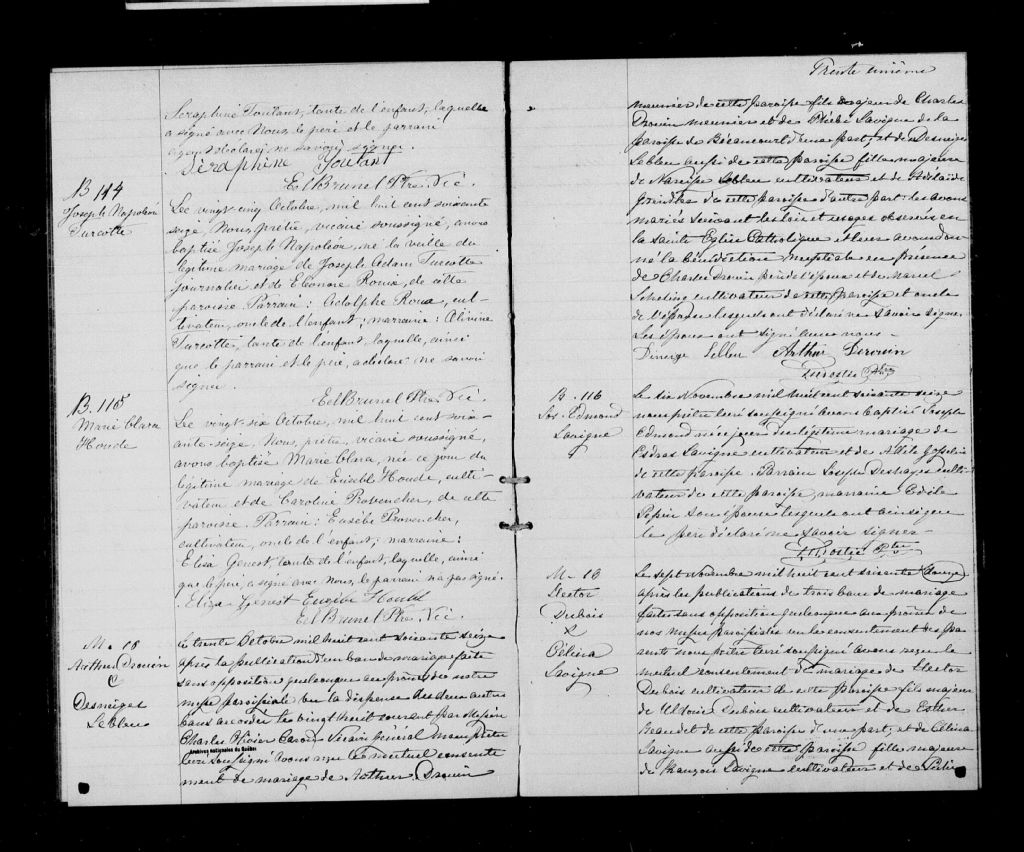 Séraphine Toutant, tante de l'enfant, laquelle
a signé avec Nous, le père et le parrain
ayant déclaré ne savoir signer.
Séraphine Toutant
Ed Brunel Ptre Vic.
B. 114
Joseph Napoléon
Turcotte
Le vingt-cinq Octobre, mil huit cent soixante
seize, Nous, prêtre, vicaire soussigné, avons
baptisé Joseph Napoléon, né la veille du
légitime mariage de Joseph Adam Turcotte
journalier et de Eléonore Roux, de cette
paroisse. Parrain: Adolphe Roux, cul-
tivateur, oncle de l'enfant; marraine: Alivine
Turcotte, tante de l'enfant, laquelle, ainsi
que le parrain et le père, a déclaré ne savoir
signer.
Ed Brunel Ptre. Vic.
B. 115
Marie Clara
Houde
Le vingt six Octobre, mil huit cent soix-
ante-seize, Nous, prêtre, vicaire soussigné,
avons baptisé Marie Clara, née ce jour du
légitime mariage de Eusèbe Houde, culti-
vateur et de Caroline Provencher, de cette
paroisse. Parrain: Eusèbe Provencher,
cultivateur, oncle de l'enfant; marraine:
Elisa Genest, tante de l'enfant, laquelle, ainsi
que le père, a signé avec Nous, le parrain n'a pas signé.
Eliza Genest Eusèbe Houde
Ed Brunel Ptre. Vic.
M. 18
Arthur Drouin
&
Desneiges
Leblanc
Le trente Octobre mil huit cent soixante seize
après la publication d'un ban de mariage faite
sans opposition quelconque au prône de notre
messe paroissiale vu la dispense des deux autres
bans accordée le vingt huit courant par Messire
Charles Olivier Caron Vicaire Général Nous prêtre
curé soussigné avons reçu le mutuel consente
ment de mariage de Arthur Drouin
Archives nationales du Québec
Trente unième
meunier de cette paroisse fils majeur de Charles
Drouin meunier et de Phébé Lavigne de la
paroisse de Bécancour d'une part; et de Desneiges
Leblanc aussi de cette paroisse fille majeure
de Narcisse Leblanc cultivateur et de Adélaïde
de cette paroisse d'autre part: les avons
mariés suivant les lois et usages observés en
la sainte Eglise Catholique et leur avons don-
né la bénédiction nuptiale en présence
de Charles Drouin père de l'époux et de
cultivateur de cette paroisse et oncle
de l'épouse lesquels ont déclaré ne savoir signer
Les époux ont signé avec nous-
Arthur Derouin
Ptre
B. 116
Jos. Edmond
Lavigne
Le six Novembre mil huit cent soixante seize
nous prêtre curé soussigné avons baptisé Joseph
Edmond né ce jour du légitime mariage de
Esdras Lavigne cultivateur et de Gosselin
de cette paroisse. Parrain Joseph Deshaies culti
vateur de cette paroisse, marraine
Pepin son épouse lesquels ont ainsi que
le père déclaré ne savoir signer-
Ptre
M. 18
Hector
Dubois
&
Célina
Lavigne
Le sept Novembre mil huit cent soixante
après les publications de trois bans de mariage
faites sans opposition quelconque aux prônes de
nos messes paroissiales vu le consentement des pa-
rents nous prêtre curé soussigné avons reçu le
mutuel consentement de mariage de Hector
Dubois cultivateur de cette paroisse fils majeur
de Dubois cultivateur et de Esther
Beaudet de cette paroisse d'une part; et de Célina
Lavigne aussi de cette paroisse fille majeure
de François Lavigne cultivateur et de